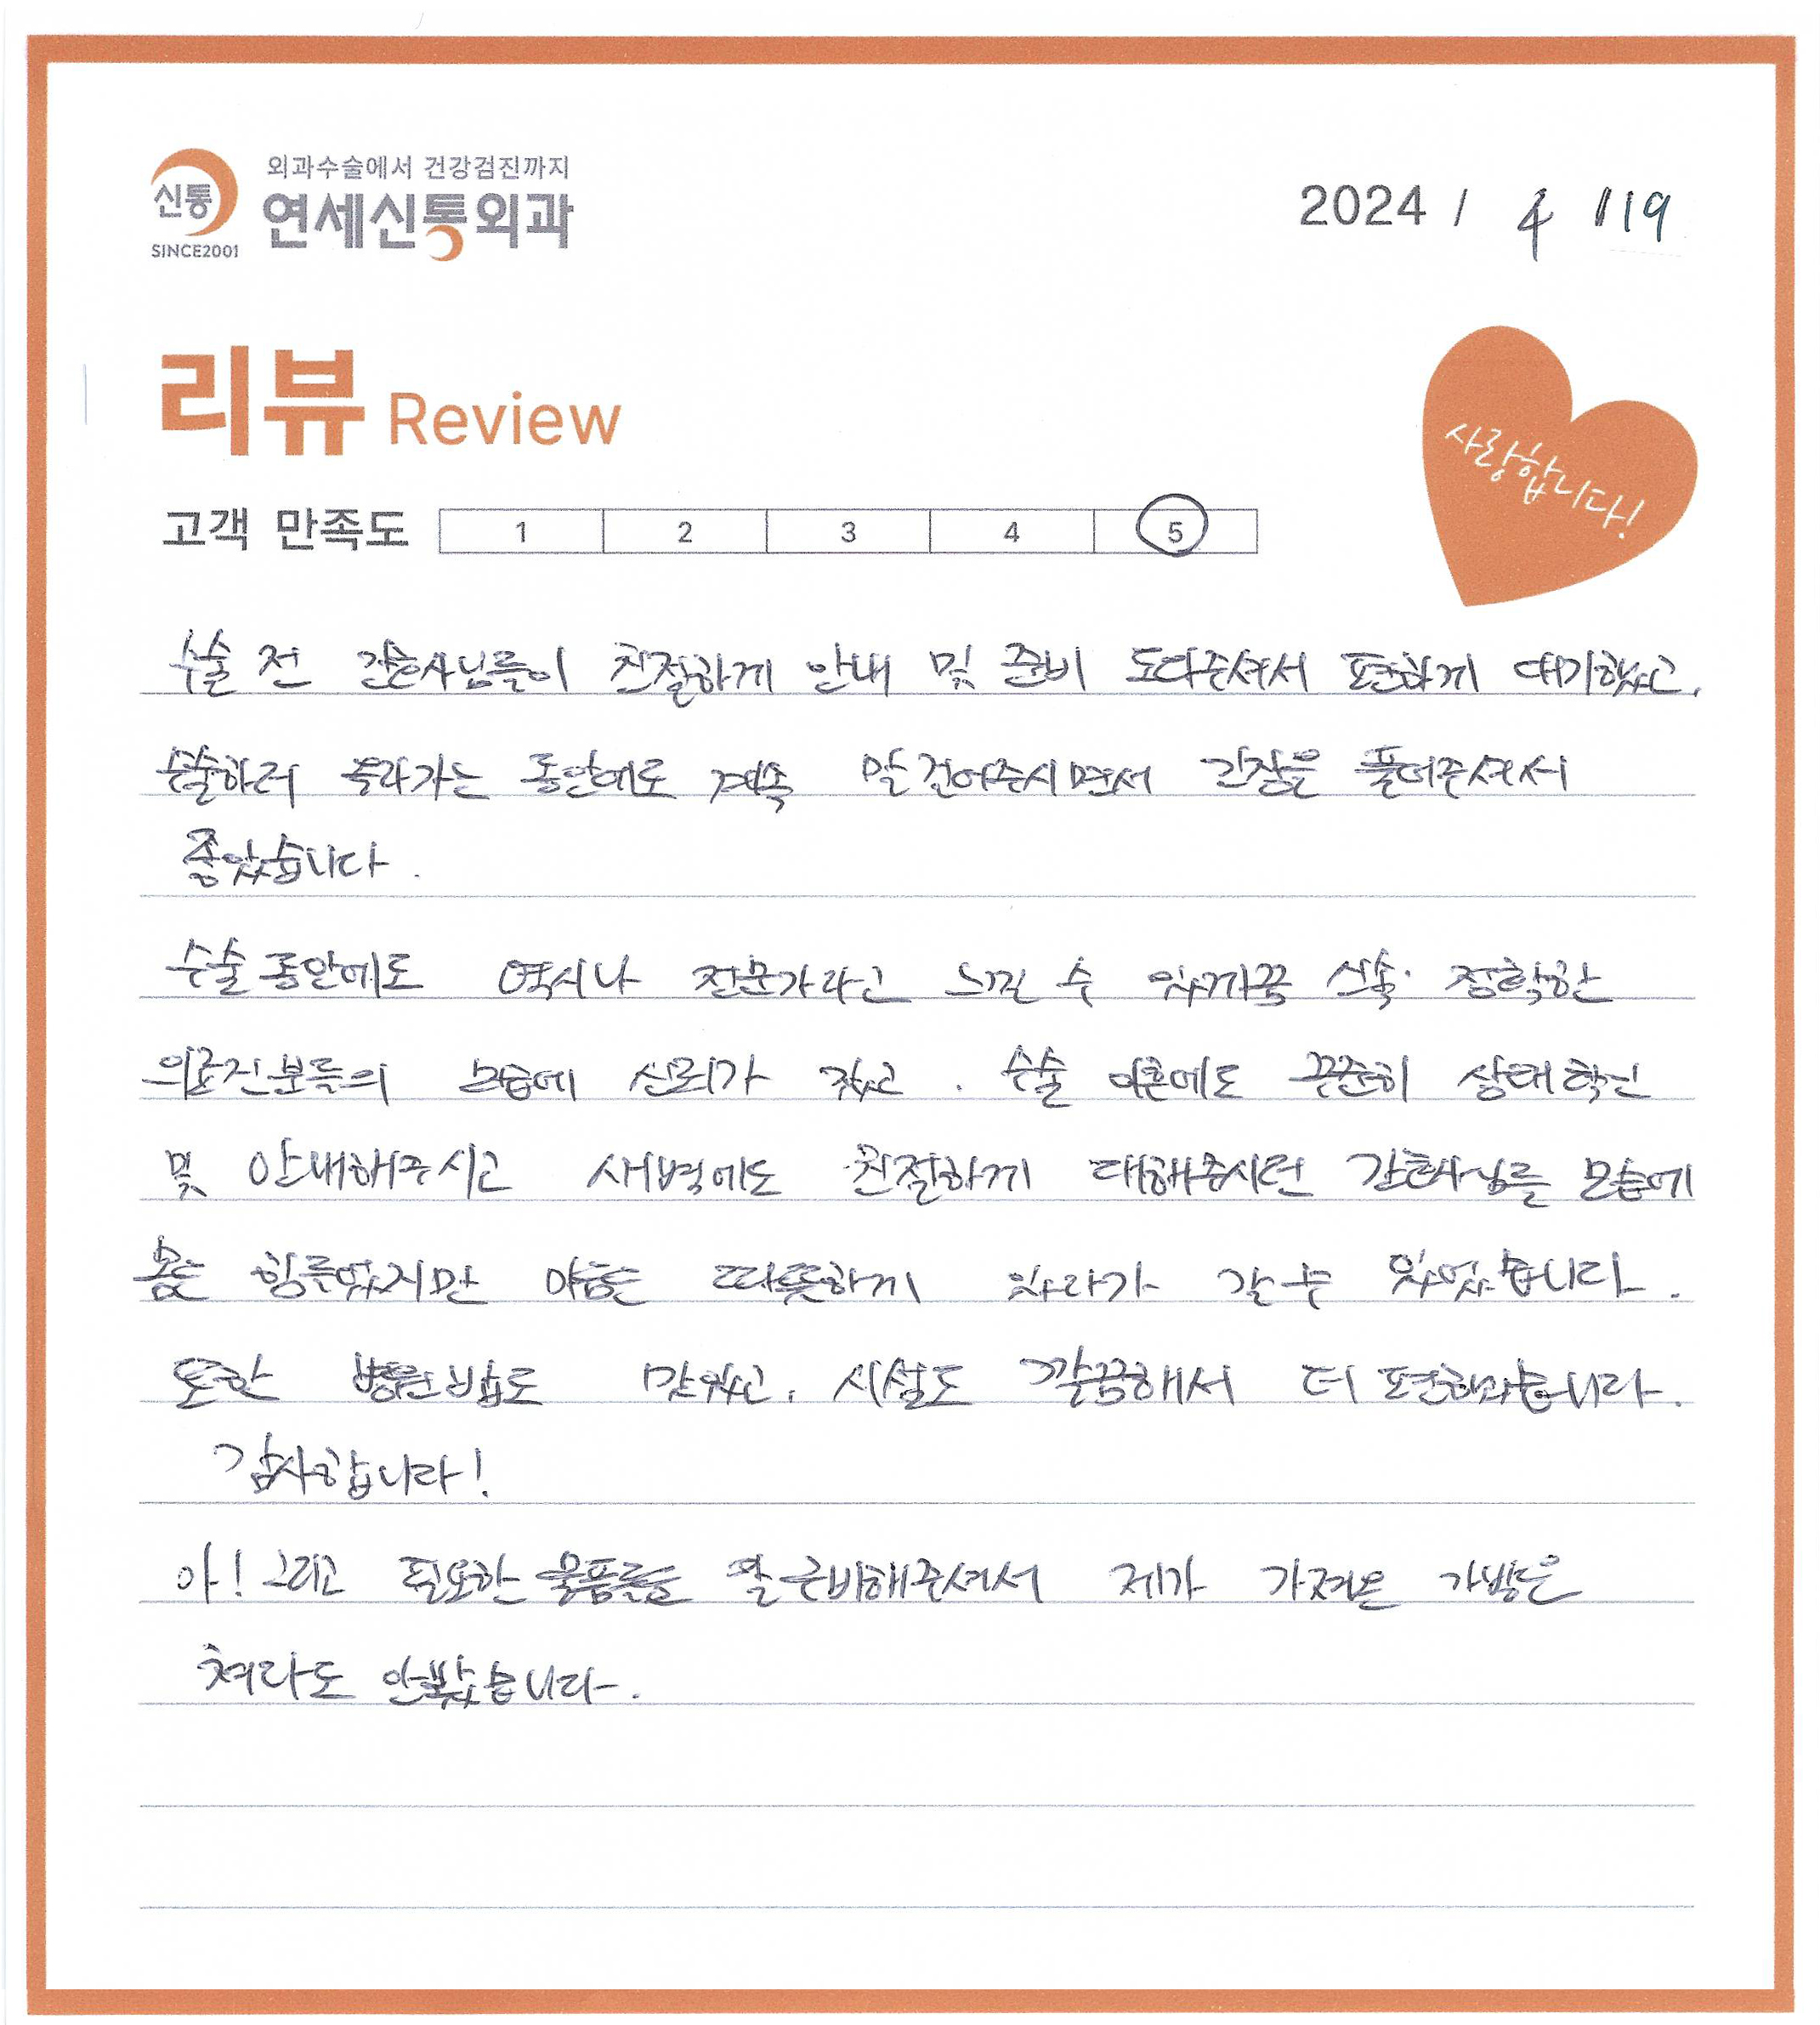 외과수술에서 건강검진까지
신통 연세신통외과
SINCE2001
2024 / 4 / 19
리뷰 Review
사랑합니다!
고객 만족도 1 2 3 4 5
수술 전 간호사님들이 친절하게 안내 및 준비 도와주셔서 편하게 대기했고,
수술하러 올라가는 동안에도 계속 말 걸어주시면서 긴장을 풀어주셔서
좋았습니다.
수술 동안에도 역시나 전문가라고 느낄 수 있게끔 신속·정확한
의료진분들의 모습에 신뢰가 갔고, 수술 이후에도 꾸준히 상태 확인
및 안내해주시고 새벽에도 친절하게 대해주시던 간호사님들 모습에
몸은 힘들었지만 마음은 따뜻하게 있다가 갈 수 있었습니다.
또한 병원밥도 맛있고, 시설도 깔끔해서 더 편하였습니다.
감사합니다!
아! 그리고 필요한 물품들을 잘 준비해주셔서 제가 가져온 가방은
쳐다도 안봤습니다.